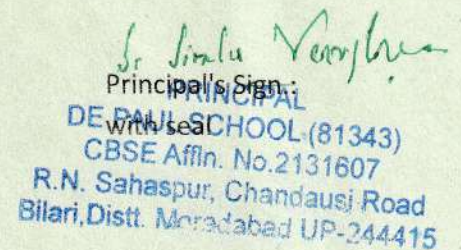 Sr
Principal's Sign.:
PRINCIPAL
with seal
DE PAUL SCHOOL (81343)
CBSE Affln. No.2131607
R.N. Sahaspur, Chandausi Road
Bilari,Distt. Moradabad UP-244415